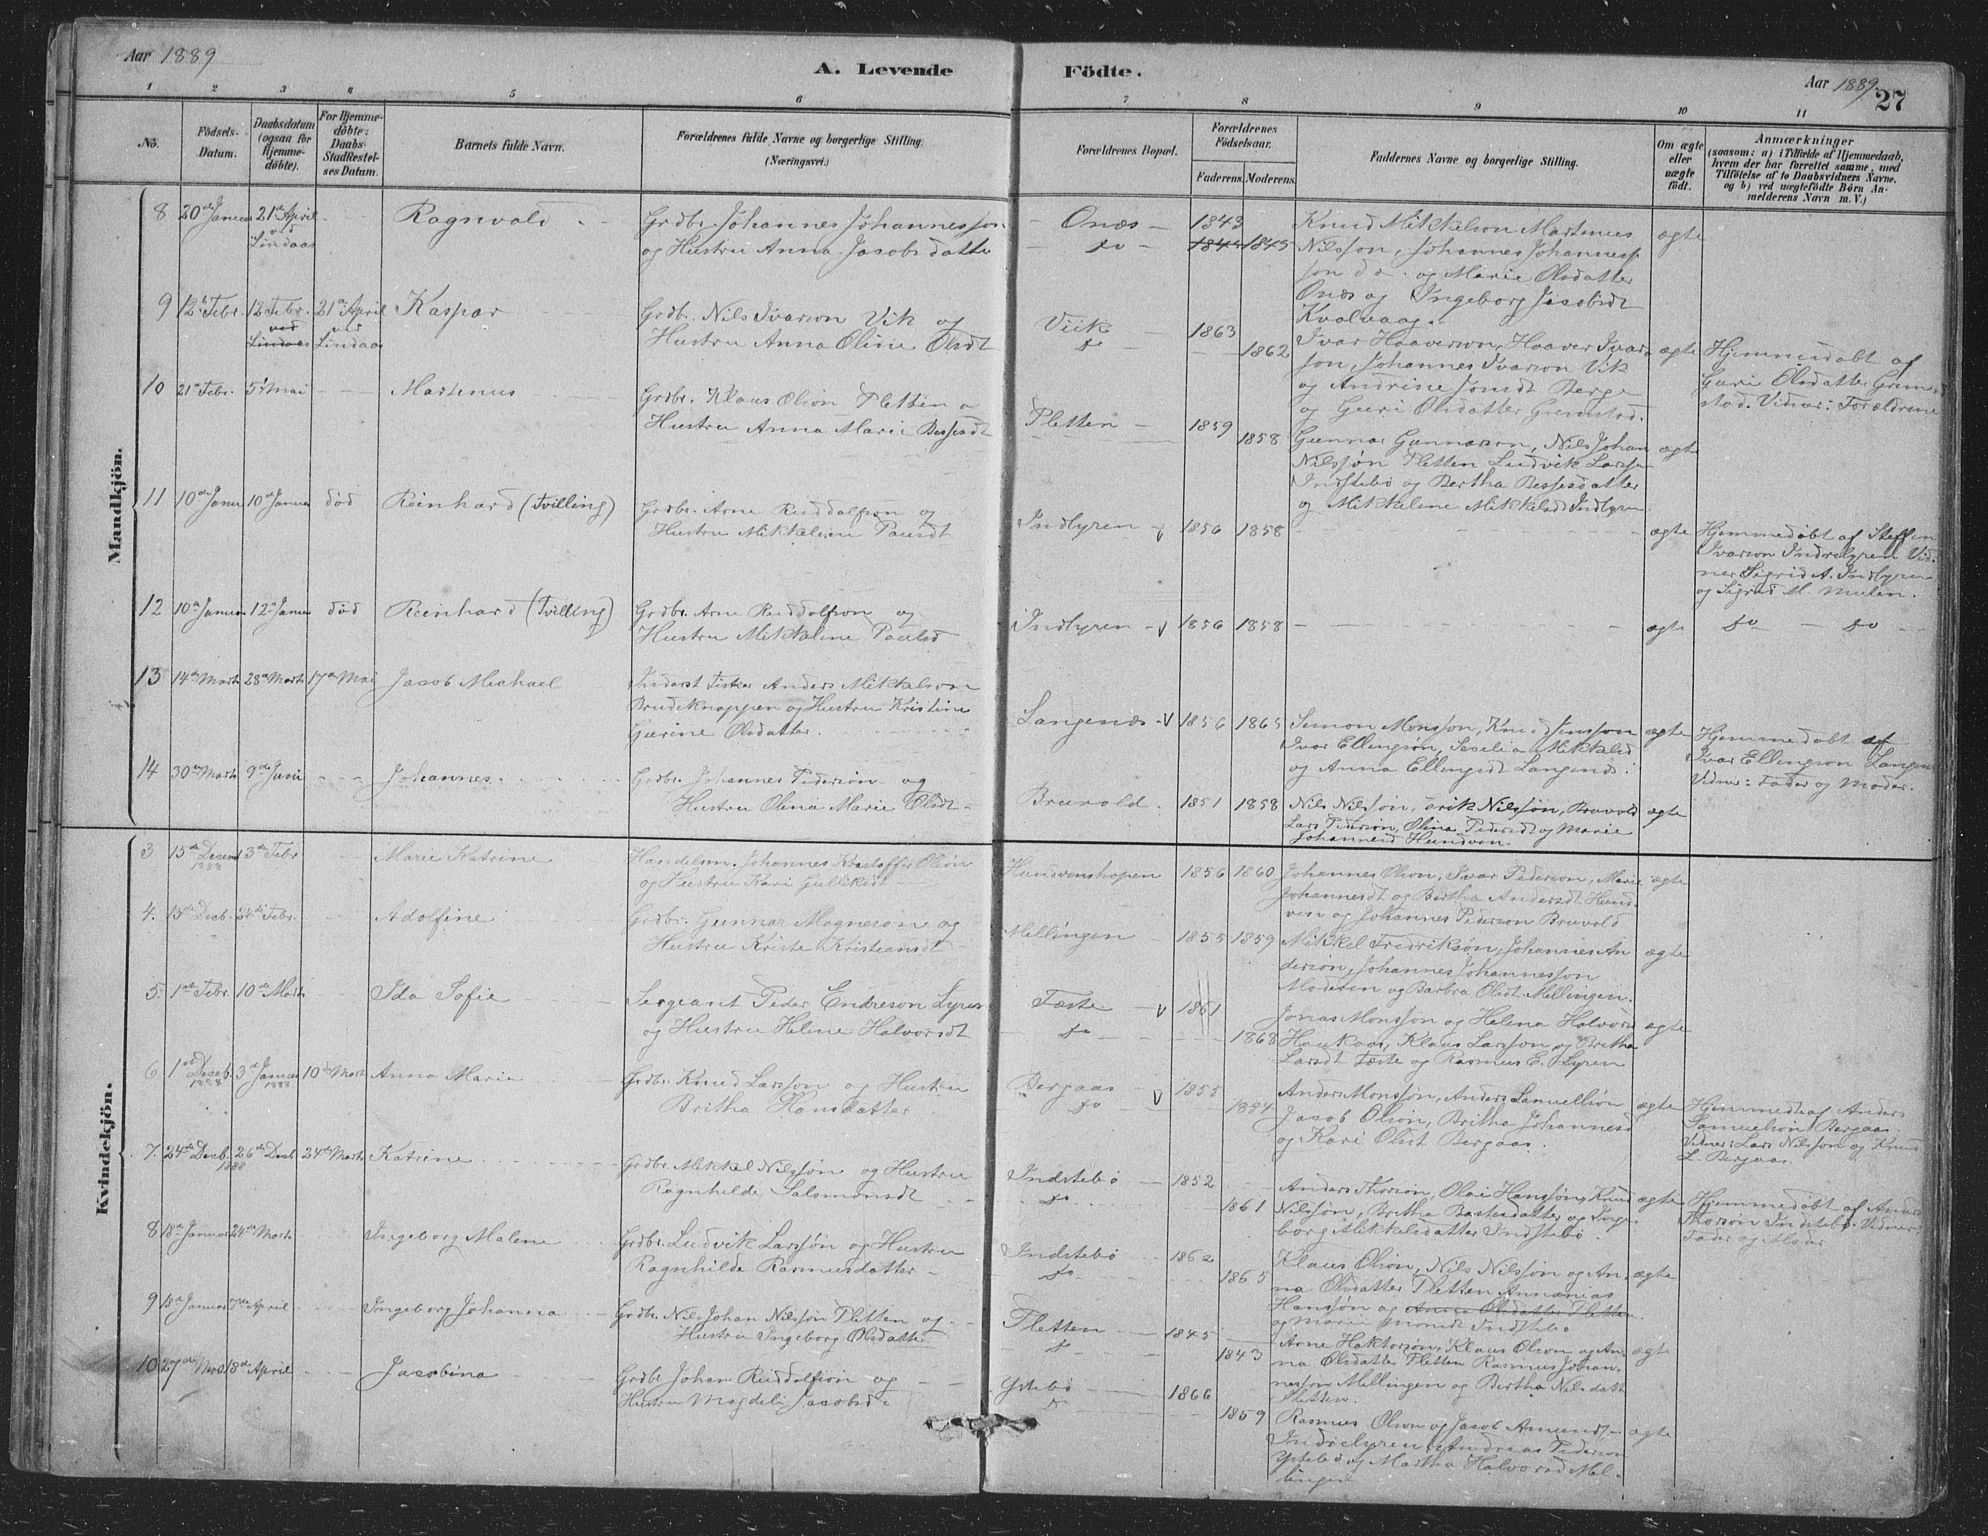 Aar 1889
A. Levende Födte.
Aar 1889
27
1 2 3 4 5 6 7 8 9 10 11
No.
Födsels-Datum.
Daabsdatum (ogsaa för Hjemme-döbte).
For Hjemme-döbte: Daabs-Stadfæstel-ses Datum.
Barnets fulde Navn.
Forældrenes fulde Navne og borgerlige Stilling.
(Næringsvei.)
Forældrenes Bopæl.
Forældrenes Födselsaar.
Faderens. Moderens.
Faddernes Navne og borgerlige Stilling.
Om ægte eller uægte födt.
Anmærkninger
(saasom: a) i Tilfælde af Hjemmedaab,
hvem der har forrettet samme, med
Tilföielse af to Daabsvidners Navne.
og b) ved uægtefödte Börn An-
melderens Navn m. V.)
Mandkjön.
8 20de Januar 21de April ved Lindaas Ragnvald
Grdbr. Johannes Johannesson
og Hustru Anna Jacobsdatter
Onæs 1843
do 1845 1845
Knud Mikkelson Martinus
Nilsson, Johannes Johannes-
son do. og Marie Olsdatter
Onæs og Ingeborg Jacobsdt
Kvalvaag.
ægte
9 12te Febr. 12 Febr. ved Lindaas 21de April ved Lindaas Kaspar
Grdb. Nils Ivarson Vik og
Hustru Anna Oline Olsdt
Viik 1863
do 1862
Ivar Haaverson, Haaver Ivar-
son, Johannes Ivarson Vik
og Andrine Jonsdt Berge
og Guri Olsdatter Grimstad.
ægte
Hjemmedöbt af
Guri Olsdatter Grim-
stad. Vidner: Forældrene
10 21de Febr. 5te Mai Martinus
Grdbr. Klaus Olson Pletten o
Hustru Anna Marie Bessesdt
Pletten 1859 1858
Gunnar Gunnarson, Nils Johan
Nilssön Pletten Ludvik Larss-
Indstebö og Bertha Bessesdatter
og Mikkeline Mikkelsdt Indlyren
ægte
11 10de Januar 10de Januar död Reinhard (Tvilling)
Grdbr. Arne Ruddolfson og
Hustru Mikkeline Paulsdt
Indlyren 1856 1858
ægte
Hjemmedöbt af Steffen
Ivarson Indrelyren Vid-
ner Sigrid A. Indlyren
og Sigrid M. Mulen.
12 10de Januar 12te Januar död Reinhard (Tvilling)
Grdbr. Arne Ruddolfson og
Hustru Mikkeline Paulsd
Indlyren 1856 1858
ægte
do do
13 14de Marts 28de Marts 17de Mai Jacob Michael
Inderst Fisker Anders Mikkelson
Brudeknappen og Hustru Kristine
Gurine Olsdatter.
Langenæs 1856 1865
Simon Monsson, Knud Jensson
Ivar Ellingson, Seselia Mikkelsd
og Anna Ellingsdt Langenæs.
ægte
Hjemmedöbt af
Ivar Ellingson Langenæs
Vidner: Fader og Moder.
14 30de Marts 9de Juni Johannes
Grdbr. Johannes Pederson og
Hustru Olina Marie Olsdt
Bruvold 1851 1858
Nils Nilssön, Erik Nilssön, Bruvold
Lars Pederson, Olina Pedersdt og Marie
Johannesd Hundven.
ægte
Kvindekjön.
3 15de Desemb 1888 3de Febr Marie Katrine
Handelsm. Johannes Kristoffer Olson
og Hustru Kari Gulliksdt
Hundvenshopen 1856 1860
Johannes Olson, Ivar Pederson, Marie
Johannesdt og Bertha Andersdt Hund-
ven og Johannes Pederson Bruvold
ægte
4. 15de Desb. 24de Febr. Adolfine
Grdbr. Gunnar Magneson og
Hustru Kriste Kristiansdt
Mellingen 1855 1859
Mikkel Fredrikson, Johannes An
derson, Johannes Johannesson
og Barbra Olsdt Mellingen.
ægte
5. 1ste Febr. 10de Marts Ida Sofie
Sergeant Peder Endreson Lyren
og Hustru Helene Halvorsdt
Fæste 1861
do 1868
Jonas Monsson og Helena Halvors
Haukaas, Klaus Larsson og Britha
Larsdt Fæste og Rasmus E. Lyren
ægte
6 1ste Deseb. 1888 3de Januar 1888 10de Marts Anna Marie
Grdbr. Knud Larsson og Hustru
Britha Hansdatter
Bergaas 1855
do 1854
Anders Monsson, Anders Samuelson
Jacob Olson, Britha Johannesd
og Kari Olsdt Bergaas.
ægte
Hjemmedöbt af Anders
Samuelson Bergaas.
Vidner: Lars Nilsson og Knud
L. Bergaas.
7. 24de Desb. 1888 26de Desb. 24de Marts Katrine
Grdbr. Mikkel Nilssön og Hustru
Ragnhilde Salomonsdt
Indstebö 1852
do 1861
Anders Thorson, Olai Hansson, Knud
Nilsson, Britha Bastesdatter og Inge-
borg Mikkelsdatter Indstebö.
ægte
Hjemmedöbt af Anders
Thorson Indstebö. Vidner:
Fader og Moder
8 18de Januar 24de Marts Ingeborg Malene
Grdbr. Ludvik Larssön og Hustru
Ragnhilde Rasmusdatter
Indstebö 1862
do 1865
Klaus Olson, Nils Nilssön og An-
na Olsdatter Pletten Annanias
Hanssön og Anna Olsdatter Pletten
og Marie Monsdt Indstebö
ægte
9 18de Januar 7de April Ingeborg Johanna
Grdbr. Nils Johan Nilssön Pletten og
Hustru Ingeborg Olsdatter
Pletten 1845
do 1843
Arne Haktorson, Klaus Olson og An-
na Olsdatter Pletten Rasmus Johan-
nesson Mellingen og Bertha Nilsdatt
Pletten.
ægte
10 27de Marts 18de April Jacobina
Grdbr Johan Ruddolfson og
Hustru Magdeli Jacobsd.
Ystebö 1866
do 1859
Rasmus Olson og Jacob Amunds-
Indrelyren, Andreas Pederson
Ystebö og Martha Halvorsd Mel-
lingen
ægte